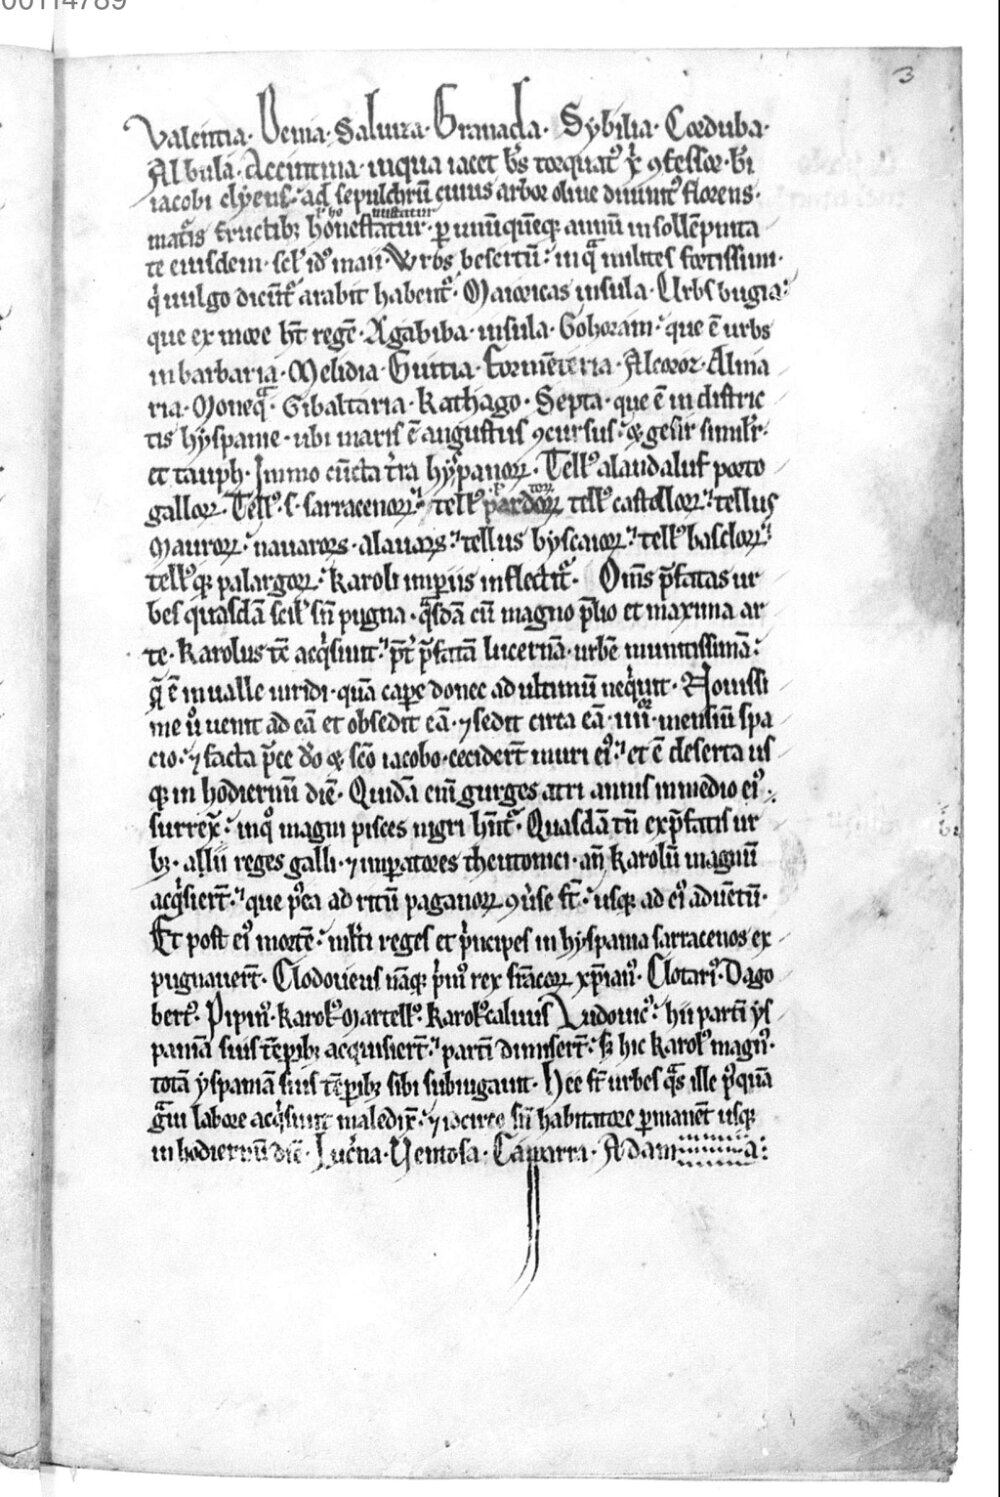 00114789
3
Valentia · Denia · Satiuza · Granada · Sybilia · Corduba ·
Abula · Accintina · inqua iacet b̄s torquatꝰ xp̄i ꝯfessor · b̄i
iacobi clyens · ad sepulchrū cuius arbor oliue diuinitꝰ florens ·
maturis fructibꝫ honestatur · ꝑ unūquēqꝫ annū in sollēpnita
te eiusdem · scl' idꝰ maii · Urbs besertū : in qᵃ milites fortissimi ·
qⁱ uulgo dicūtʳ arabit habentʳ · Maioricas insula · Urbs bugia :
que ex more hn̄t regē · Agabiba · insula · Gohoram : que ē urbs
in barbaria · Melidia · Guitia · Formēteria · Alcoroz · Alma
ria · Moneqᵃ · Gibaltaria · Kathago · Septa · que ē in distric
tis hyspanie · ubi maris ē angustus ꝯcursus : & gesir similr̄ ·
et tauph · Immo cūcta t̄ra hyspanoꝝ · Tellꝰ alaudaluf porto
galloꝝ · Tellꝰ · s · sarracenoꝝ : tellꝰ pardoꝝ tellꝰ castelloꝝ : tellus
Mauroꝝ : nauaroꝝ · alauaꝝ : tellus byscaioꝝ : tellꝰ bascloꝝ :
tellꝰqꝫ palargoꝝ : karoli imperiis inflectitʳ · Om̄s p̄fatas ur
bes quasdā scil' sn̄ pugna · qᵃsdā cū magno p̄lio et maxima ar
te · Karolus tc̄ acqⁱsiuit : p̄t p̄fatā lucernā · urbē munitissimā :
q̄ ē in ualle uiridi · quā capꝑe donec ad ultimū neqⁱuit · Nouissi
me u͛o uenit ad eā et obsedit eā · ⁊ sedit circa eā · iiiiᵒʳ · mensiū spa
cio : ⁊ facta p̄ce dō & sc̄o iacobo · cecider̄t muri eiꝰ : et ē deserta us
qꝫ in hodiernū diē · Quidā eni̅ gurges atri amnis in medio eiꝰ :
surrex̄ : in qᵒ magni pisces nigri hn̄tʳ · Quasdā tn̄ ex p̄fatis ur
bꝫ · allii reges galli · ⁊ imꝑatores theutonici · an̄ karolū magnū
acqⁱsier̄t : que pᵒea ad ritū paganoꝝ ꝯu͛se st̄ : usqꝫ ad eiꝰ aduētū ·
Et post eiꝰ mortē : ml̄ti reges et pⁱncipes in hyspania sarracenos ex
pugnauer̄t · Clodoueus nāqꝫ pⁱmꝰ rex frācoꝝ xp̄ianꝰ · Clotariꝰ · Dago
bertꝰ · Pipinꝰ · karolꝰ Martellꝰ · karolꝰ caluus Ludouicꝰ : hii parti̅ ys
paniā suis tēporibꝫ acquisier̄t : parti̅ dimiser̄t : sꝫ hic karolꝰ magnꝰ ·
totā yspaniā suis tēporibꝫ sibi subiugauit · Hee st̄ urbes qᵃs ille pᵒquā
gᵃui labore acqⁱsiuit maledix̄ : ⁊ iccirco sn̄ habitatore ꝑmanēt usqꝫ
in hodiernū diē · Luc͛na · Uentosa · Caparra · Adamia :